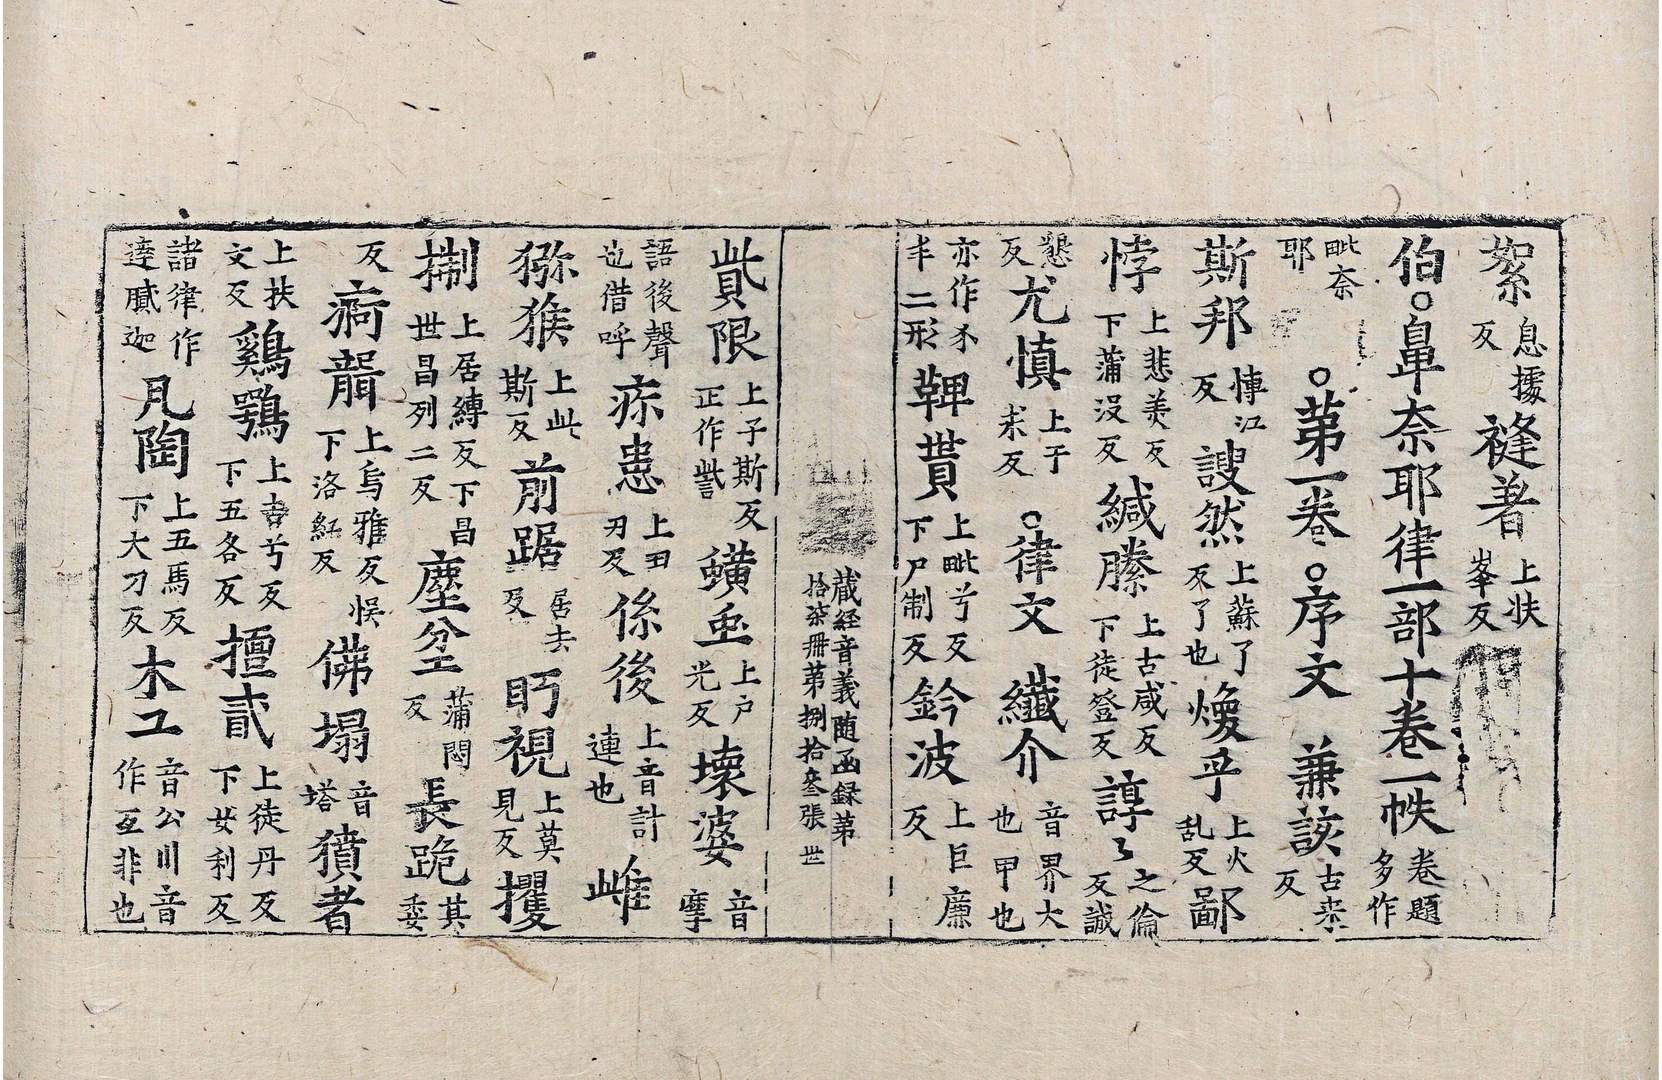 絮息㩀反縫著上扶峯反
伯○鼻奈耶律一部十卷一帙卷題多作
毗奈耶○苐一卷○序文兼該古来反
斯邦愽江反謏然上蘇了反了也煥乎上火乱反鄙
悖上悲羙反下蒲没反緘縢上古咸反下徒登反諄〻之倫反誠
懇反尤慎上于求反○律文纖介音界大也甲也
亦作芥丰二形鞞貰上毗兮反下尸制反鈐波上巨廉反
藏経音義随函録苐
拾柒冊苐捌拾叄張 世
貲限上子斯反正作訾蟥虫上户光反壊婆音摩
語後聲也借呼㾁患上丑刃反係後上音計連也雌
猕猴上此斯反前踞居去反眄視上莫見反攫
㨷上居縛反下昌世昌列二反塵坌蒲悶反長跪其委
反瘂聾上烏雅反悮下洛紅反佛塌音塔獖者
上扶文反鷄鶚上古兮反下五各反擅貳上徒丹反下女利反
諸律作達膩迦凡陶上五馬反下大刀反木工音公川音作互非也